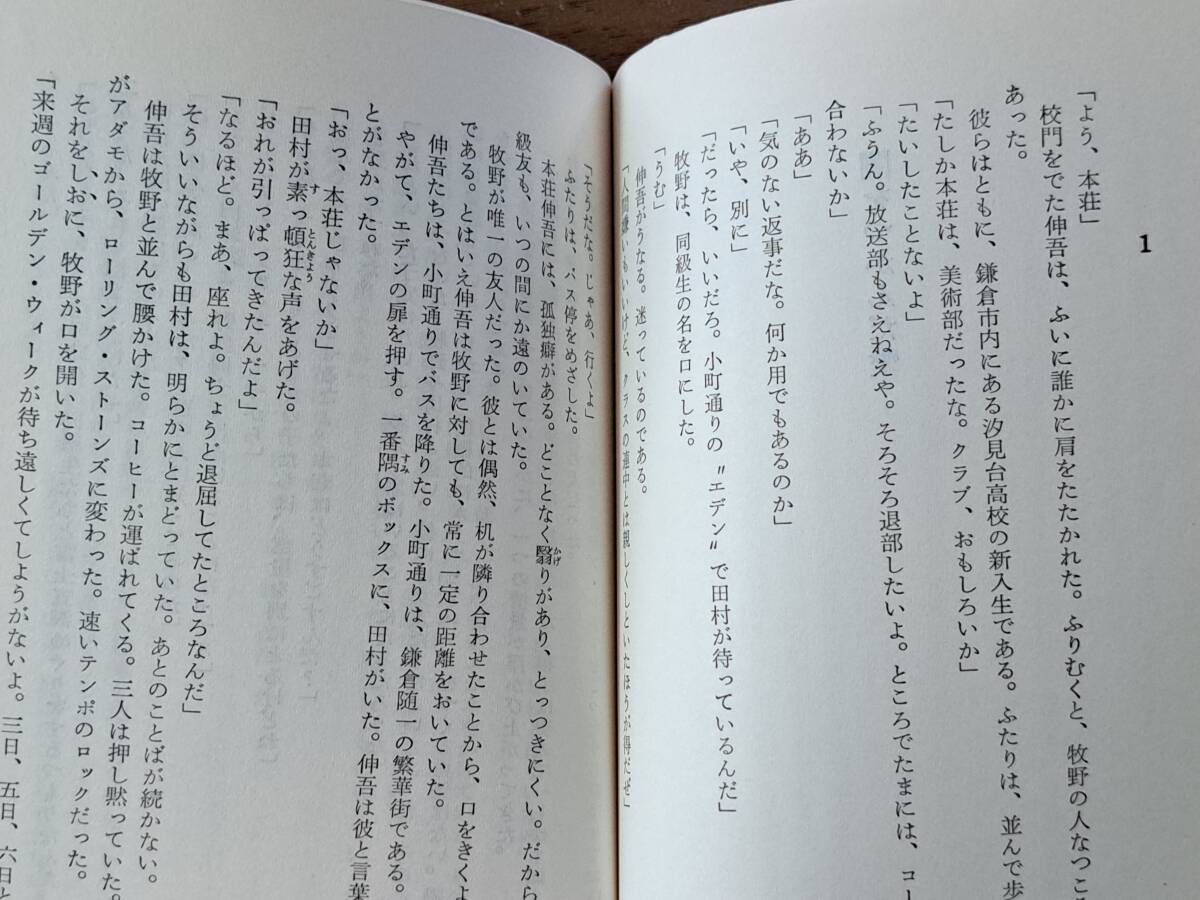 1
「よう、本荘」
校門をでた伸吾は、ふいに誰かに肩をたたかれた。ふりむくと、牧野の人なつこ
あった。
彼らはともに、鎌倉市内にある汐見台高校の新入生である。ふたりは、並んで歩
「たしか本荘は、美術部だったな。クラブ、おもしろいか」
「たいしたことないよ」
「ふうん。放送部もさえねえや。そろそろ退部したいよ。ところでたまには、コー
合わないか」
「ああ」
「気のない返事だな。何か用でもあるのか」
「いや、別に」
「だったら、いいだろ。小町通りの〝エデン〟で田村が待っているんだ」
牧野は、同級生の名を口にした。
「うむ」
伸吾がうなる。迷っているのである。
「人間嫌いもいいけど、クラスの連中とは親しくしといたほうが得だぜ」
「そうだな。じゃあ、行くよ」
ふたりは、バス停をめざした。
本荘伸吾には、孤独癖がある。どことなく翳りがあり、とっつきにくい。だから
級友も、いつの間にか遠のいていた。
牧野が唯一の友人だった。彼とは偶然、机が隣り合わせたことから、口をきくよ
である。とはいえ伸吾は牧野に対しても、常に一定の距離をおいていた。
伸吾たちは、小町通りでバスを降りた。小町通りは、鎌倉随一の繁華街である。
やがて、エデンの扉を押す。一番隅のボックスに、田村がいた。伸吾は彼と言葉
とがなかった。
「おっ、本荘じゃないか」
田村が素っ頓狂な声をあげた。
「おれが引っぱってきたんだよ」
「なるほど。まあ、座れよ。ちょうど退屈してたところなんだ」
そういいながらも田村は、明らかにとまどっていた。あとのことばが続かない。
伸吾は牧野と並んで腰かけた。コーヒーが運ばれてくる。三人は押し黙っていた。
がアダモから、ローリング・ストーンズに変わった。速いテンポのロックだった。
それをしおに、牧野が口を開いた。
「来週のゴールデン・ウィークが待ち遠しくてしようがないよ。三日、五日、六日と